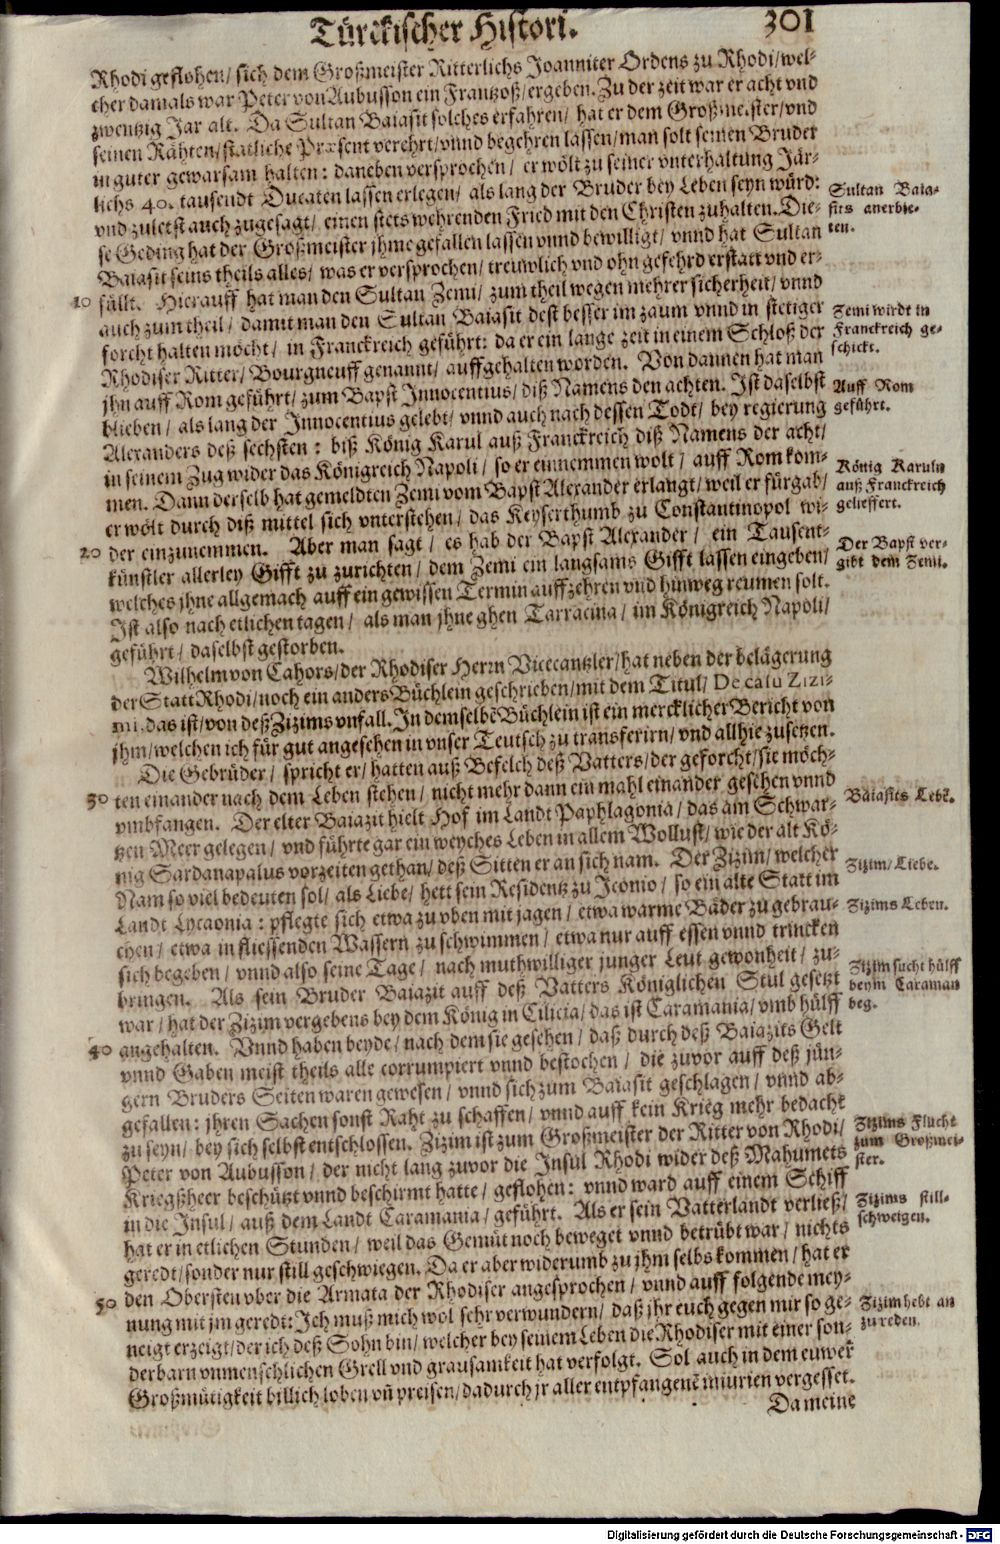 Türckischer Histori. 301
Rhodi geflohen/ sich dem Großmeister Ritterlichs Joanniter Ordens zu Rhodi/ wel-
cher damals war Peter von Aubusson ein Frantzoß/ ergeben. Zu der zeit war er acht vnd
zwentzig Jar alt. Da Sultan Baiasit solches erfahren/ hat er dem Großmeister/ vnd
seinen Rähten/ statliche Præsent verehrt/ vnnd begehren lassen/ man solt seinen Bruder
in guter gewarsam halten: daneben versprochen/ er wölt zu seiner vnterhaltung Jär-
lichs 40. tausendt Ducaten lassen erlegen/ als lang der Bruder bey Leben seyn würd:
vnd zuletst auch zugesagt/ einen stets wehrenden Fried mit den Christen zuhalten. Die-
se Geding hat der Großmeister jhme gefallen lassen vnnd bewilligt/ vnnd hat Sultan
Baiasit seins theils alles/ was er versprochen/ treuwlich vnd ohn gefehrd erstatt vnd er-
10 füllt. Hierauff hat man den Sultan Zemi/ zum theil wegen mehrer sicherheit/ vnnd
auch zum theil/ damit man den Sultan Baiasit dest besser im zaum vnnd in stetiger
forcht halten möcht/ in Franckreich geführt: da er ein lange zeit in einem Schloß der
Rhodiser Ritter/ Bourgneuff genannt/ auffgehalten worden. Von dannen hat man
jhn auff Rom geführt/ zum Bapst Innocentius/ diß Namens den achten. Ist daselbst
blieben/ als lang der Innocentius gelebt/ vnnd auch nach dessen Todt/ bey regierung
Alexanders deß sechsten: biß König Karul auß Franckreich diß Namens der acht/
in seinem Zug wider das Königreich Napoli/ so er einnemmen wolt/ auff Rom kom-
men. Dann derselb hat gemeldten Zemi vom Bapst Alexander erlangt/ weil er fürgab/
er wölt durch diß mittel sich vnterstehen/ das Keyserthumb zu Constantinopol wi-
20 der einzunemmen. Aber man sagt/ es hab der Bapst Alexander/ ein Tausent-
künstler allerley Gifft zu zurichten/ dem Zemi ein langsams Gifft lassen eingeben/
welches jhne allgemach auff ein gewissen Termin auffzehren vnd hinweg reumen solt.
Ist also nach etlichen tagen/ als man jhne ghen Tarracina/ im Königreich Napoli/
geführt/ daselbst gestorben.
Wilhelm von Cahors/ der Rhodiser Herrn Vicecantzler/ hat neben der belägerung
der Statt Rhodi/ noch ein anders Büchlein geschrieben/ mit dem Titul/ De casu Zizi-
mi, das ist/ von deß Zizims vnfall. In demselbē Büchlein ist ein mercklicher Bericht von
jhm/ welchen ich für gut angesehen in vnser Teutsch zu transferirn/ vnd allhie zusetzen.
Die Gebrüder/ spricht er/ hatten auß Befelch deß Vatters/ der geforcht/ sie möch-
30 ten einander nach dem Leben stehen/ nicht mehr dann ein mahl einander gesehen vnnd
vmbfangen. Der elter Baiazit hielt Hof im Landt Paphlagonia/ das am Schwar-
tzen Meer gelegen/ vnd führte gar ein weyches Leben in allem Wollust/ wie der alt Kö-
nig Sardanapalus vorzeiten gethan/ deß Sitten er an sich nam. Der Zizim/ welcher
Nam so viel bedeuten sol/ als Liebe/ hett sein Residentz zu Iconio/ so ein alte Statt im
Landt Lycaonia: pflegte sich etwa zu vben mit jagen/ etwa warme Bäder zu gebrau-
chen/ etwa in fliessenden Wassern zu schwimmen/ etwa nur auff essen vnnd trincken
sich begeben/ vnnd also seine Tage/ nach muthwilliger junger Leut gewonheit/ zu-
bringen. Als sein Bruder Baiazit auff deß Vatters Königlichen Stul gesetzt
war/ hat der Zizim vergebens bey dem König in Cilicia/ das ist Caramania/ vmb hülff
40 angehalten. Vnnd haben beyde/ nach dem sie gesehen/ daß durch deß Baiazits Gelt
vnnd Gaben meist theils alle corrumpiert vnnd bestochen/ die zuvor auff deß jün-
gern Bruders Seiten waren gewesen/ vnnd sich zum Baiasit geschlagen/ vnnd ab-
gefallen: jhren Sachen sonst Raht zu schaffen/ vnnd auff kein Krieg mehr bedacht
zu seyn/ bey sich selbst entschlossen. Zizim ist zum Großmeister der Ritter von Rhodi/
Peter von Aubusson/ der nicht lang zuvor die Insul Rhodi wider deß Mahumets
Kriegßheer beschützt vnnd beschirmt hatte/ geflohen: vnnd ward auff einem Schiff
in die Insul/ auß dem Landt Caramania/ geführt. Als er sein Vatterlandt verließ/
hat er in etlichen Stunden/ weil das Gemüt noch beweget vnnd betrübt war/ nichts
geredt/ sonder nur still geschwiegen. Da er aber widerumb zu jhm selbs kommen/ hat er
50 den Obersten vber die Armata der Rhodiser angesprochen/ vnnd auff folgende mey-
nung mit jm geredt: Ich muß mich wol sehr verwundern/ daß jhr euch gegen mir so ge-
neigt erzeigt/ der ich deß Sohn bin/ welcher bey seinem Leben die Rhodiser mit einer son-
derbarn vnmenschlichen Grell vnd grausamkeit hat verfolgt. Sol auch in dem euwer
Großmütigkeit billich loben vñ preisen/ dadurch jr aller entpfangenē iniurien vergesset.
Da meine
Sultan Baia-
sits anerbie-
ten.
Zemi wirdt in
Franckreich ge-
schickt.
Auff Rom
geführt.
König Karuln
auß Franckreich
gelieffert.
Der Bapst ver-
gibt dem Zemi.
Baiasits Lebē.
Zizim/ Liebe.
Zizims Leben.
Zizim sucht hülff
beym Caraman
beg.
Zizims Flucht
zum Großmei-
ster.
Zizims still-
schweigen.
Zizim hebt an
zu reden.
Digitalisierung gefördert durch die Deutsche Forschungsgemeinschaft - DFG